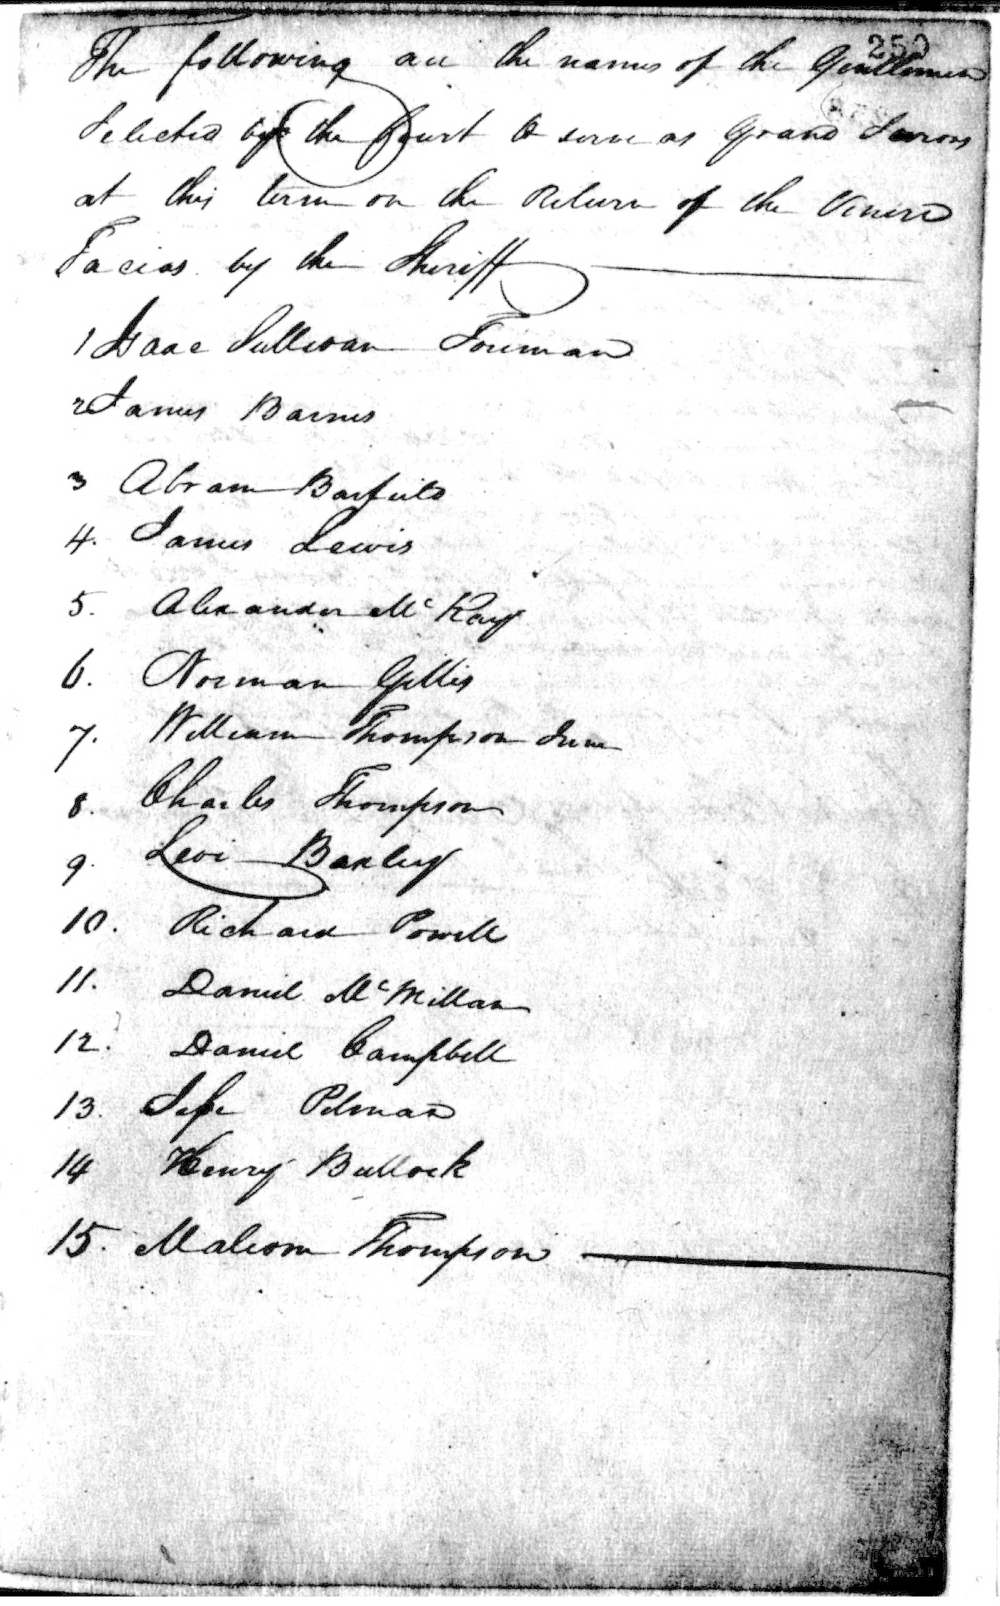 250
The following are the names of the Gentlemen
Selected by the Court to serve as Grand Jurors
at this term on the Return of the Venire
Facias by the Sheriff
1 Isaac Sullivan Foreman
2 James Barnes
3 Abram Barfield
4. James Lewis
5. Alexander McKay
6. Norman Gillis
7. William Thompson Junr
8. Charles Thompson
9. Levi Baxley
10. Richard Powell
11. Daniel McMillan
12. Daniel Campbell
13. Jesse Pitman
14 Henry Bullock
15. Malcom Thompson